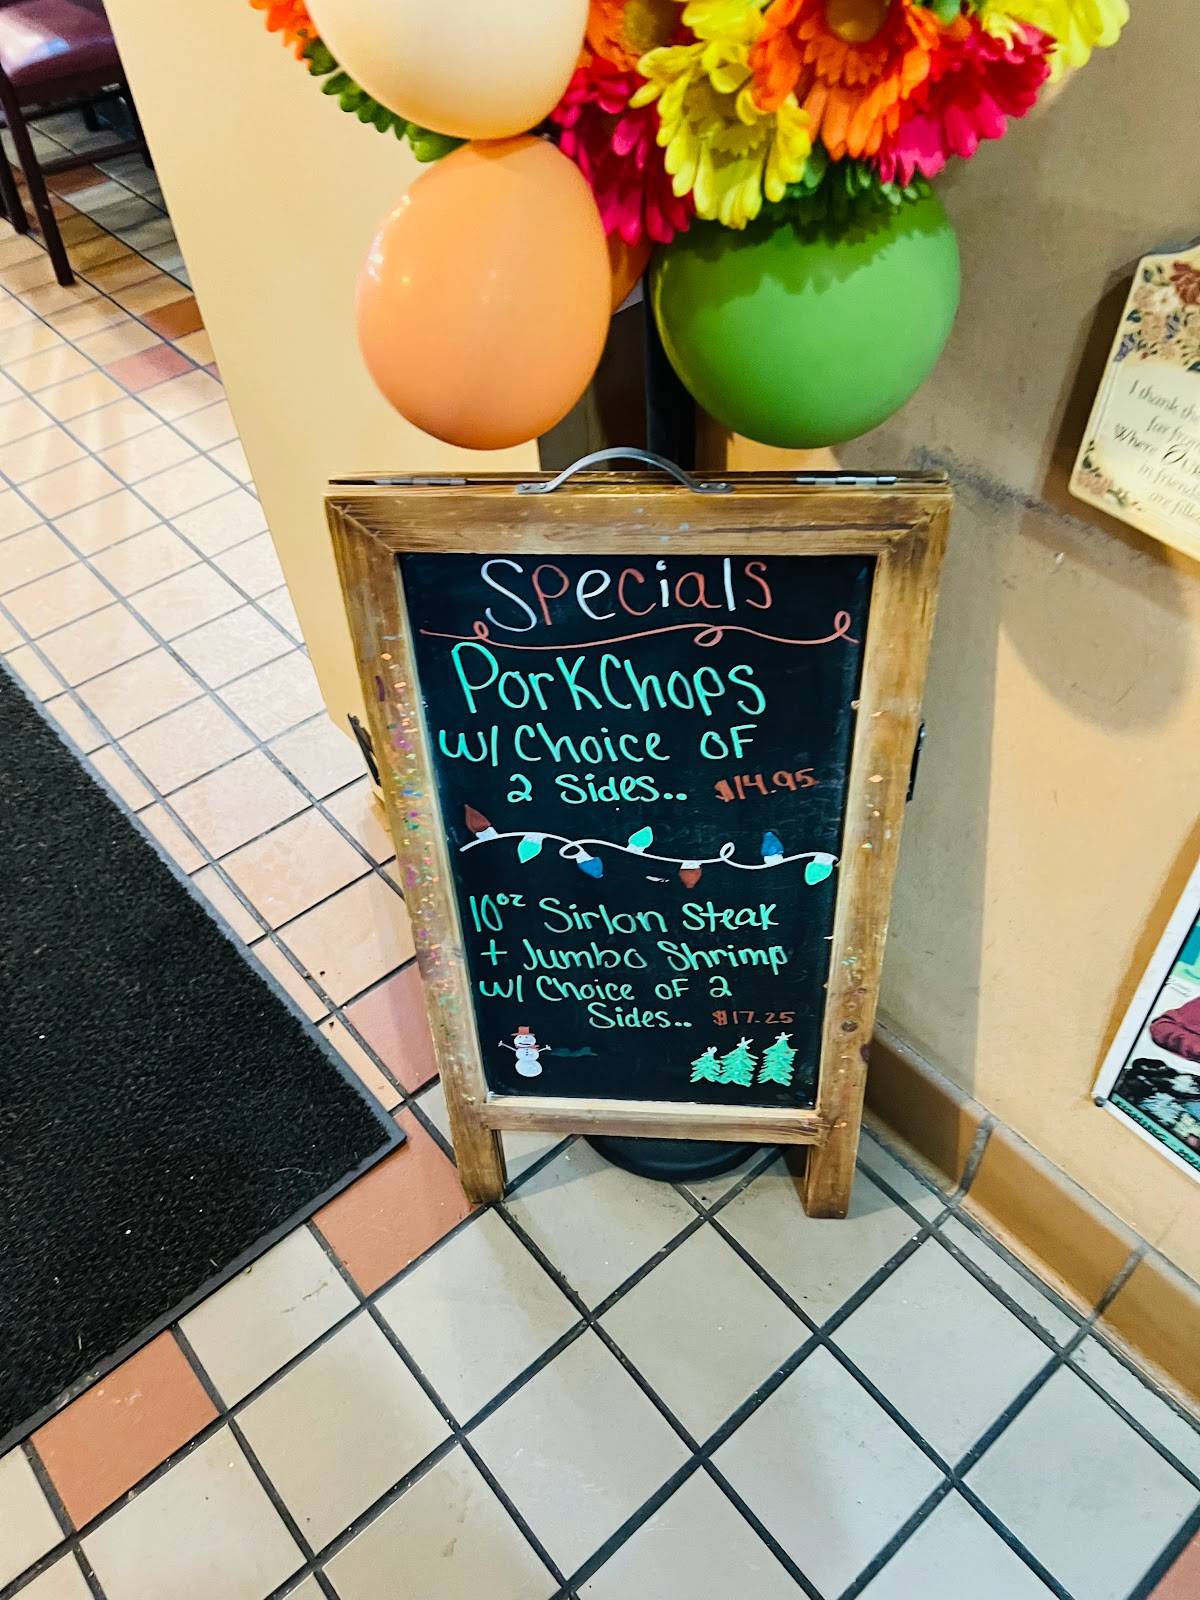 Specials
PorkChops
w/ Choice of
2 Sides.. $14.95
10oz Sirlon Steak
+ Jumbo Shrimp
w/ Choice of 2
Sides.. $17.25
I thank
far from
Where
in friend
are fille